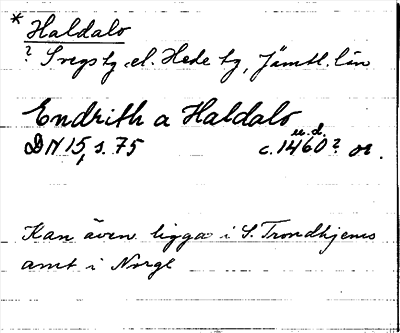 * Haldalo
? Svegs tg. el. Hede tg, Jämtl. län
Endrith a Haldalo
DN 15, s. 75 c. 1460? or.
u.d.
Kan även ligga i S. Trondhjems
amt i Norge